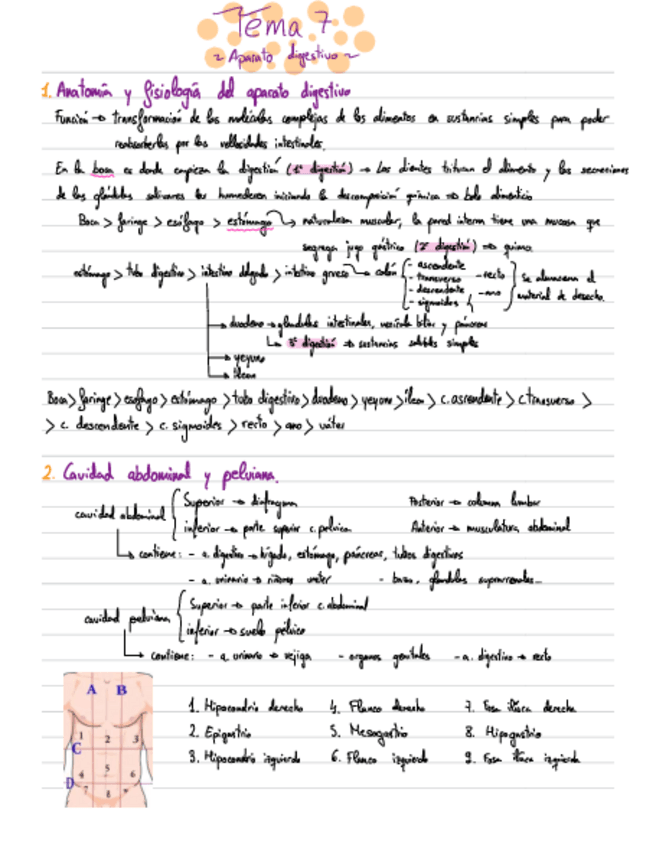 Tema 7
~ Aparato digestivo ~
1. Anatomía y fisiología del aparato digestivo
Función → transformación de las moléculas complejas de los alimentos en sustancias simples para poder
reabsorberlas por las vellosidades intestinales.
En la boca es donde empieza la digestión (1ª digestión) → Los dientes trituran el alimento y las secreciones
de las glándulas salivares los humedecen iniciando la descomposición química ⇒ bolo alimenticio
Boca > faringe > esófago > estómago → naturaleza muscular, la pared interna tiene una mucosa que
segrega jugo gástrico (2ª digestión) ⇒ quimo.
estómago > tubo digestivo > intestino delgado > intestino grueso → colon
- ascendente
- transverso
- descendente
- sigmoides
- recto
- ano
Se almacena el
material de desecho.
→ duodeno → glándulas intestinales, vesícula biliar y páncreas
↳ 3ª digestión ⇒ sustancias solubles simples
→ yeyuno
→ íleon
Boca > faringe > esófago > estómago > tubo digestivo > duodeno > yeyuno > íleon > c. ascendente > c transverso >
> c. descendente > c. sigmoides > recto > ano > váter
2. Cavidad abdominal y pelviana.
cavidad abdominal
Superior → diafragma
Posterior → columna lumbar
inferior → parte superior c. pelvica
Anterior → musculatura abdominal
contiene: - a. digestivo → hígado, estómago, páncreas, tubos digestivos
- a. urinario → riñones uréter
- bazo, glándulas suprarrenales...
cavidad pelviana
Superior → parte inferior c. abdominal
inferior → suelo pélvico
contiene: - a. urinario → vejiga
- organos genitales
- a. digestivo → recto
A B
1 2 3
C
4 5 6
D
7 8
1. Hipocondrio derecho
4. Flanco derecho
7. Fosa ilíaca derecha
2. Epigastrio
5. Mesogastrio
8. Hipogastrio
3. Hipocondrio izquierdo
6. Flanco izquierdo
9. Fosa ilíaca izquierda